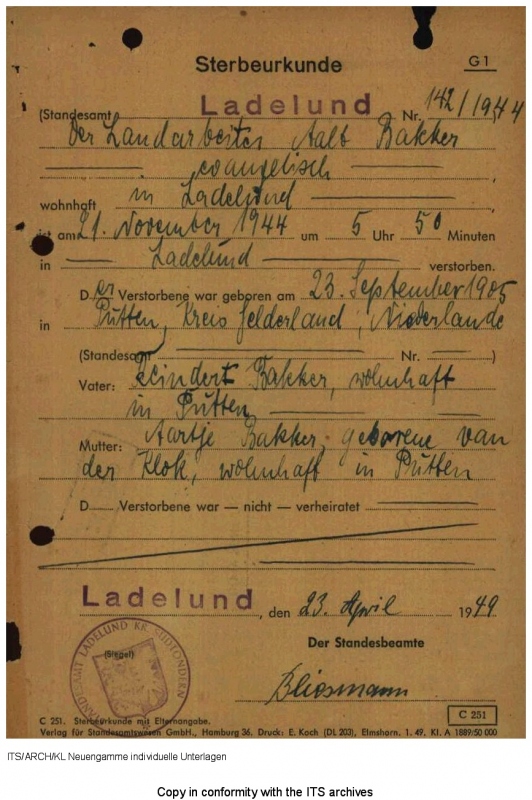 Sterbeurkunde
G 1
(Standesamt Ladelund Nr. 142/1944
der Landarbeiter Aalt Bakker
evangelisch
wohnhaft in Ladelund
ist am 21. November 1944 um 5 Uhr 50 Minuten
in Ladelund verstorben.
D er Verstorbene war geboren am 23. September 1905
in Putten, Kreis Gelderland, Niederlande
(Standesamt Nr. )
Vater: Reindert Bakker, wohnhaft
in Putten
Mutter: Aartje Bakker, geborene van
der Klok, wohnhaft in Putten
D Verstorbene war — nicht — verheiratet
Ladelund, den 23. April 1949
Der Standesbeamte
(Siegel)
STANDESAMT LADELUND KR. SÜDTONDERN
C 251
C 251. Sterbeurkunde mit Elternangabe.
Verlag für Standesamtswesen GmbH., Hamburg 36. Druck: E. Koch (DL 203), Elmshorn. 1. 49. Kl. A 1889/50 000
ITS/ARCH/KL Neuengamme individuelle Unterlagen
Copy in conformity with the ITS archives